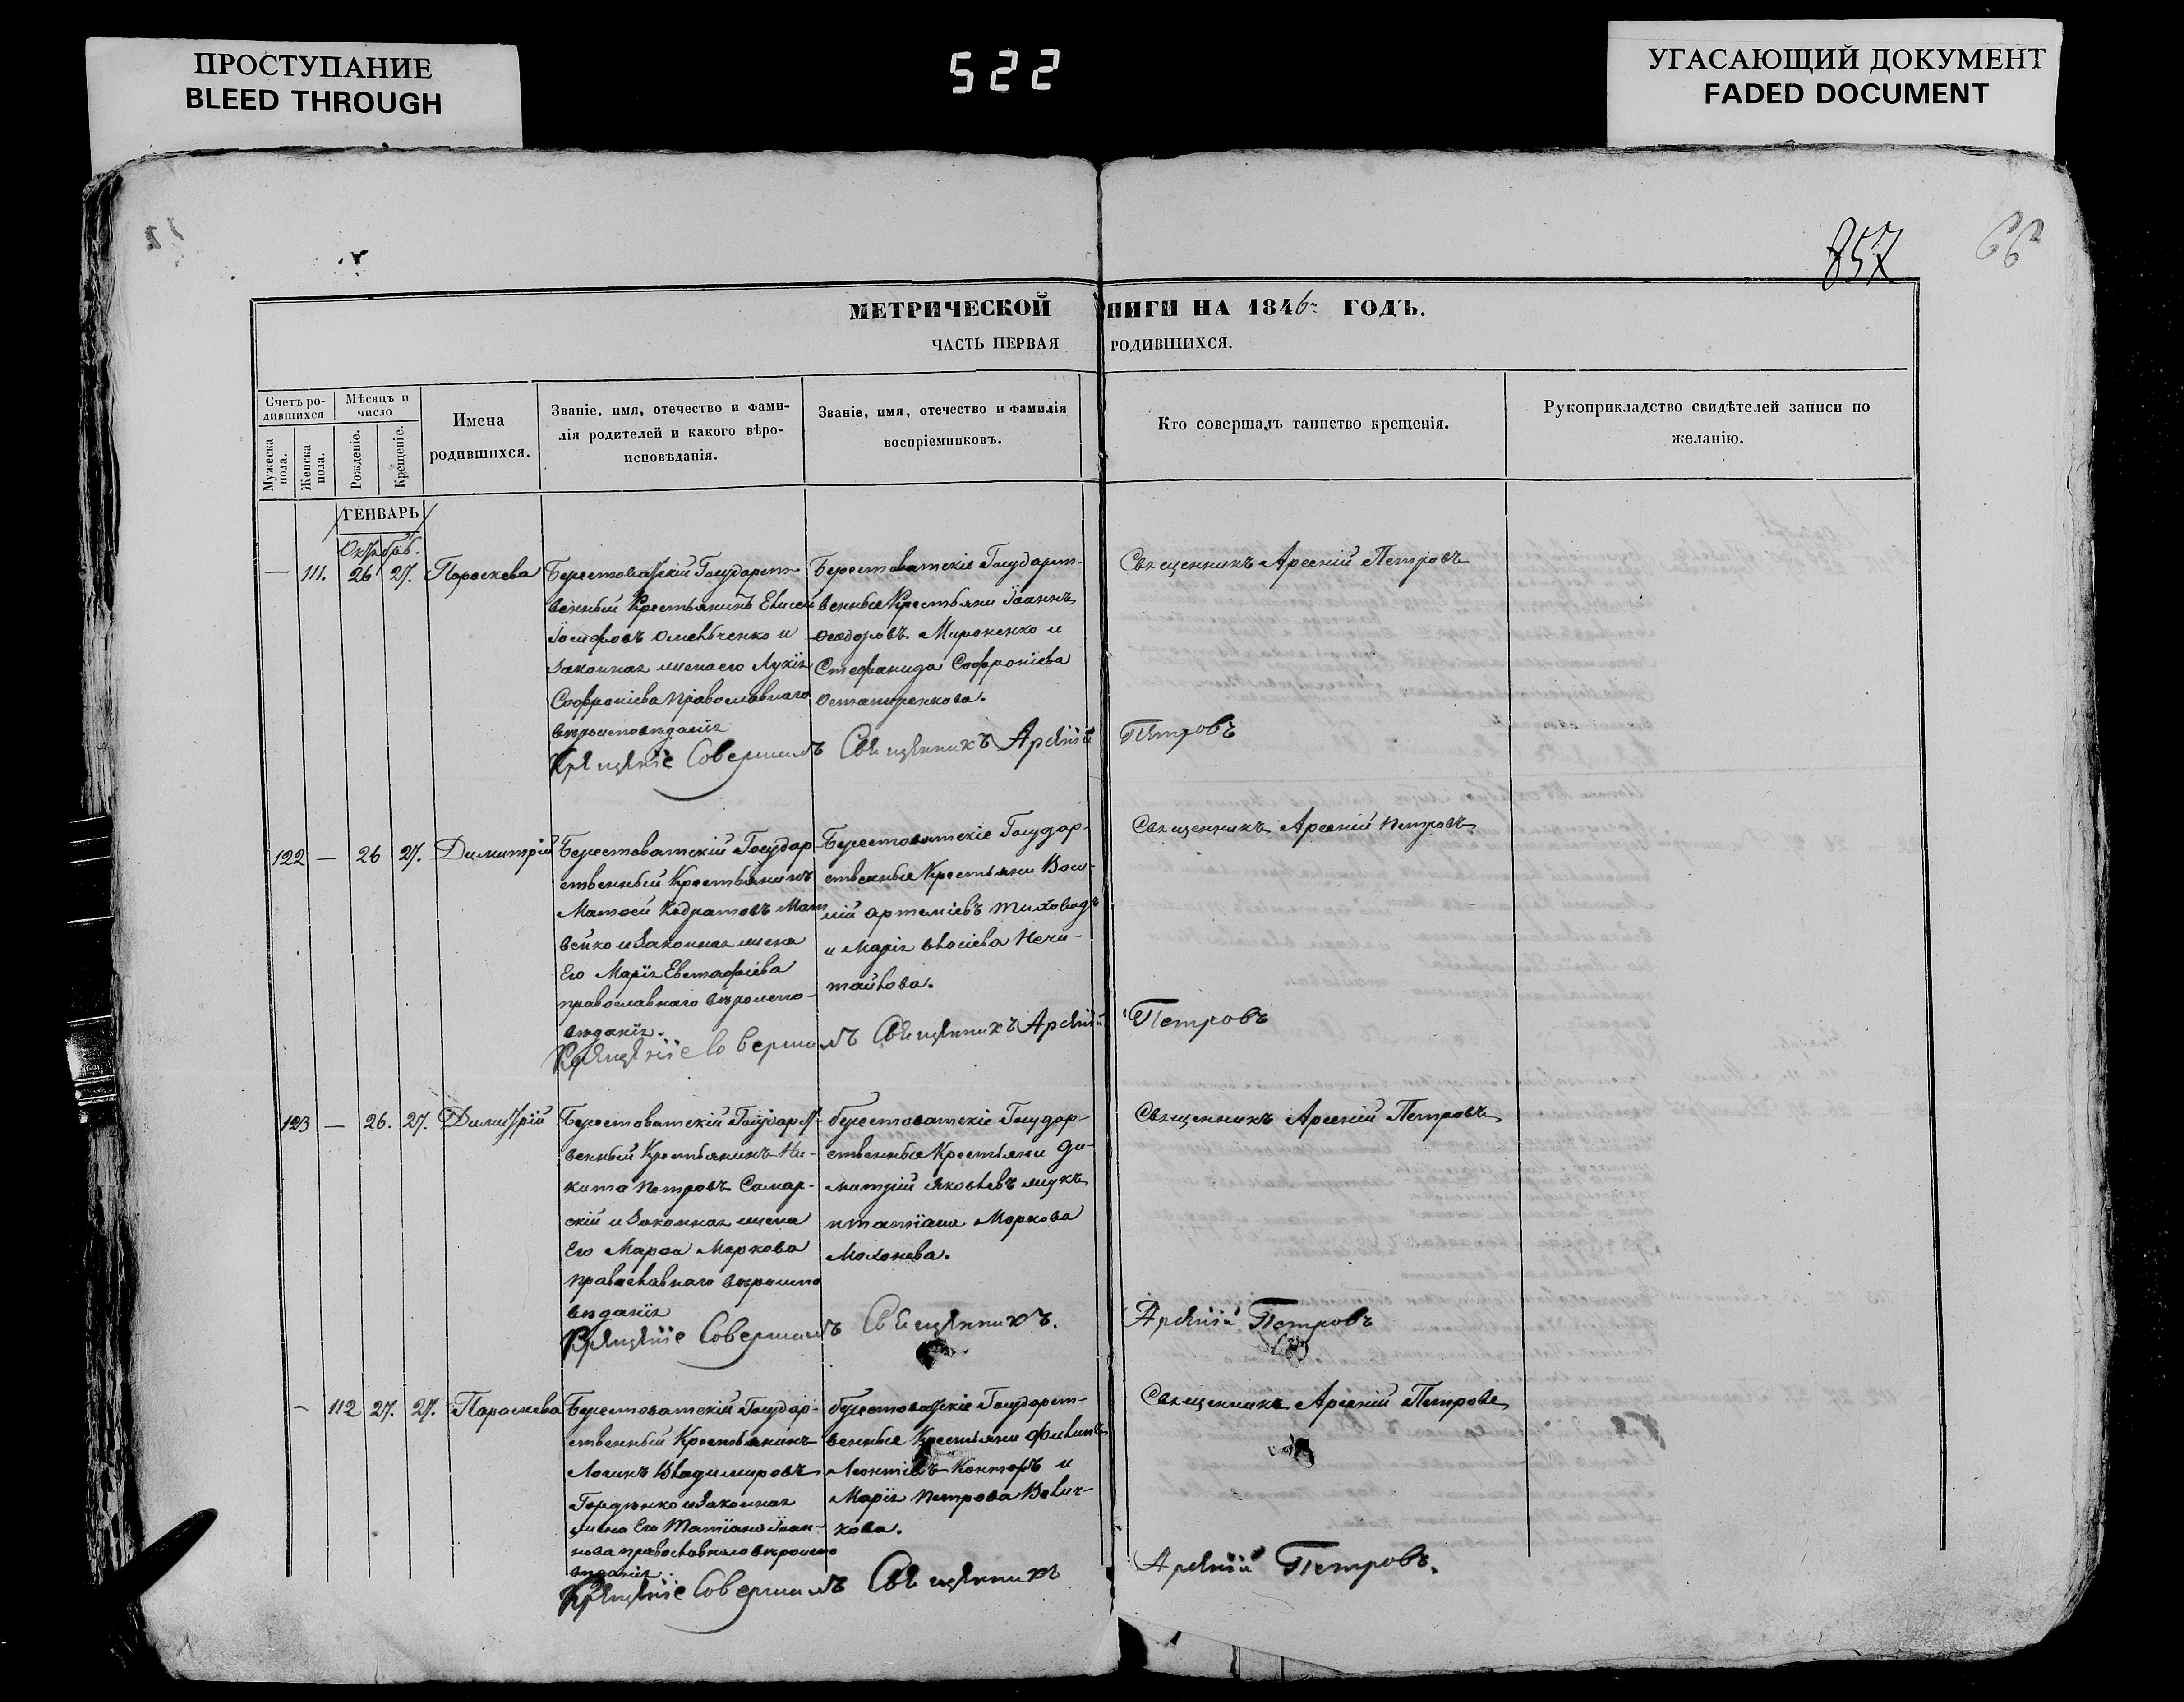 ПРОСТУПАНИЕ
BLEED THROUGH
522
УГАСАЮЩИЙ ДОКУМЕНТ
FADED DOCUMENT
857
66
МЕТРИЧЕСКОЙ НИГИ НА 1846 ГОДЪ.
ЧАСТЬ ПЕРВАЯ РОДИВШИХСЯ.
Счетъ ро-
дившихся
Мѣсяцъ и
число
Мужеска
пола.
Женска
пола.
Рожденіе.
Крещеніе.
Имена
родившихся.
Званіе, имя, отечество и фами-
лія родителей и какого вѣро-
исповѣданія.
Званіе, имя, отечество и фамилія
воспріемниковъ.
Кто совершалъ таинство крещенія.
Рукоприкладство свидѣтелей записи по
желанію.
ГЕНВАРЬ
— 111. 26 27. Параскева
Берестоватскій Государст-
венный Крестьянинъ Елисей
Іосифовъ Омельченко и
Законная жена его Лукія
Софроніева православнаго
вѣроисповѣданія
Берестоватскіе Государст-
венные Крестьяни Іоаннъ
Ѳеодоровъ Мироненко и
Стефанида Софроніева
Священникъ Арсеній Петровъ
Крещеніе Совершилъ Священникъ Арсеній Петровъ
122 — 26 27. Димитрій
Берестоватскій Государ-
ственный Крестьянинъ
Матвей Кодратовъ Мат
вейко и Законная жена
Его Марія Евстафіева
православнаго вѣроиспо-
вѣданія.
Берестоватскіе Государ-
ственные Крестьяни Васи-
лій Артеміевъ
и Марія
Священникъ Арсеній Петровъ
Крещеніе Совершилъ Священникъ Арсеній Петровъ
123 — 26. 27. Димитрій
Берестоватскій Государст-
венный Крестьянинъ Ни-
кита Петровъ Самар-
скій и Законная жена
Его Марѳа Маркова
православнаго вѣроиспо
вѣданія
Берестоватскіе Государ-
ственные Крестьяни Ди-
митрій Яковлевъ
Маркова
Священникъ Арсеній Петровъ
Крещеніе Совершилъ Священникъ. Арсеній Петровъ
- 112 27. 27. Параскева
Берестоватскій Государ-
ственный Крестьянинъ
Логинъ Владимировъ
Гордѣнко и Законная
жена Его Татіана Іоан-
нова православнаго вѣроиспо
вѣданія.
Берестоватскіе Государст-
венные Крестьяни Филипъ
Леонтіевъ и
Марія Петрова Велич-
кова.
Священникъ Арсеній Петровъ
Крещеніе Совершилъ Священникъ Арсеній Петровъ.